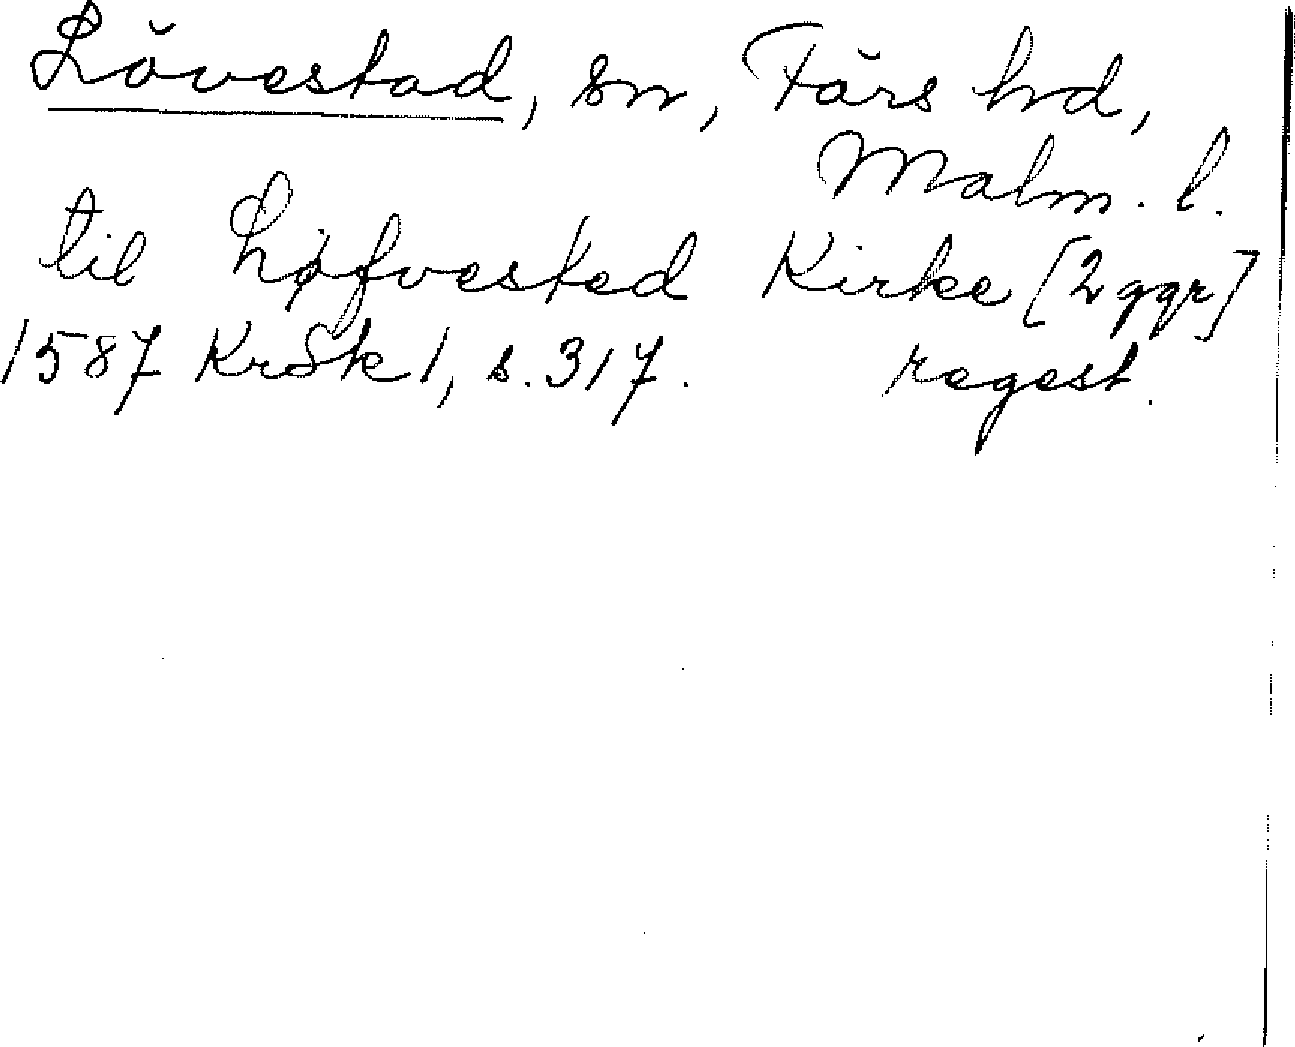 Lövestad, sn, Färs hd,
Malm. l.
til Løfvested Kirke [2 ggr]
1587 KrSk 1, s. 317. regest.